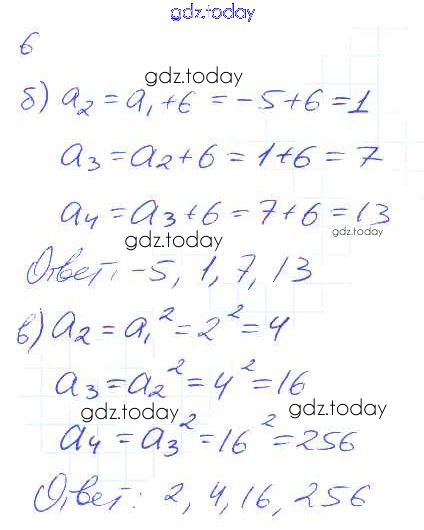 gdz.today
6
gdz.today
б) a₂ = a₁ + 6 = -5 + 6 = 1
a₃ = a₂ + 6 = 1 + 6 = 7
a₄ = a₃ + 6 = 7 + 6 = 13
gdz.today gdz.today
Ответ: -5, 1, 7, 13
в) a₂ = a₁² = 2² = 4
a₃ = a₂² = 4² = 16
gdz.today gdz.today
a₄ = a₃² = 16² = 256
Ответ: 2, 4, 16, 256